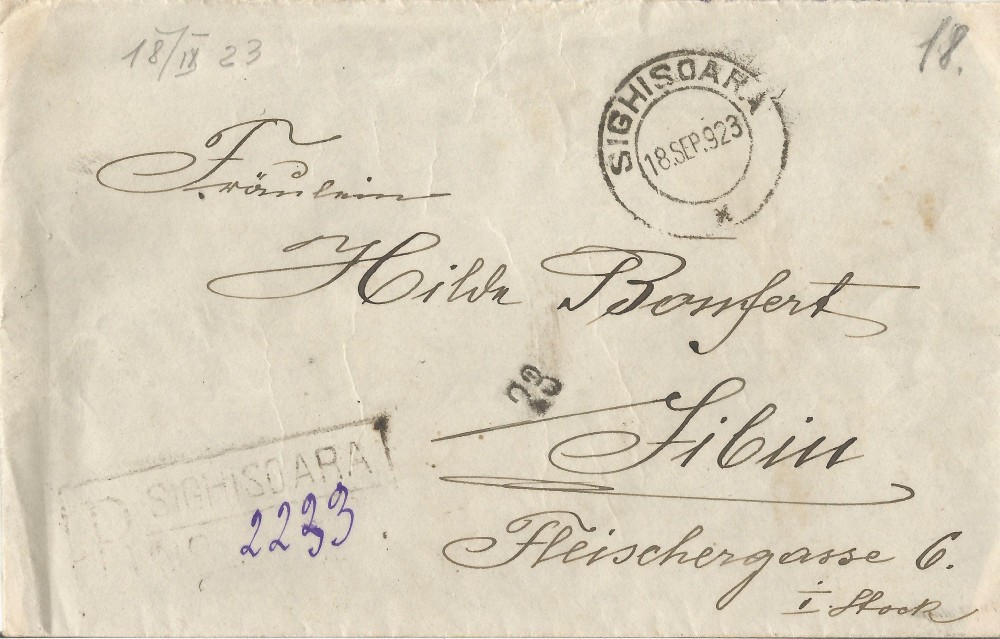 18/IX 23
18.
SIGHISOARA
18.SEP.923
*
Fräulein
Hilde Bonfert
23
Sibiu
R SIGHISOARA
2233
Fleischergasse 6.
I. Stock